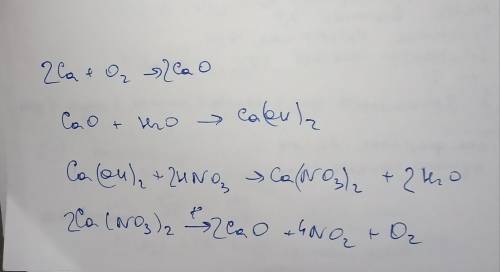 2Ca + O2 → 2CaO
CaO + H2O → Ca(OH)2
Ca(OH)2 + 2HNO3 → Ca(NO3)2 + 2H2O
2Ca(NO3)2 t°→ 2CaO + 4NO2 + O2